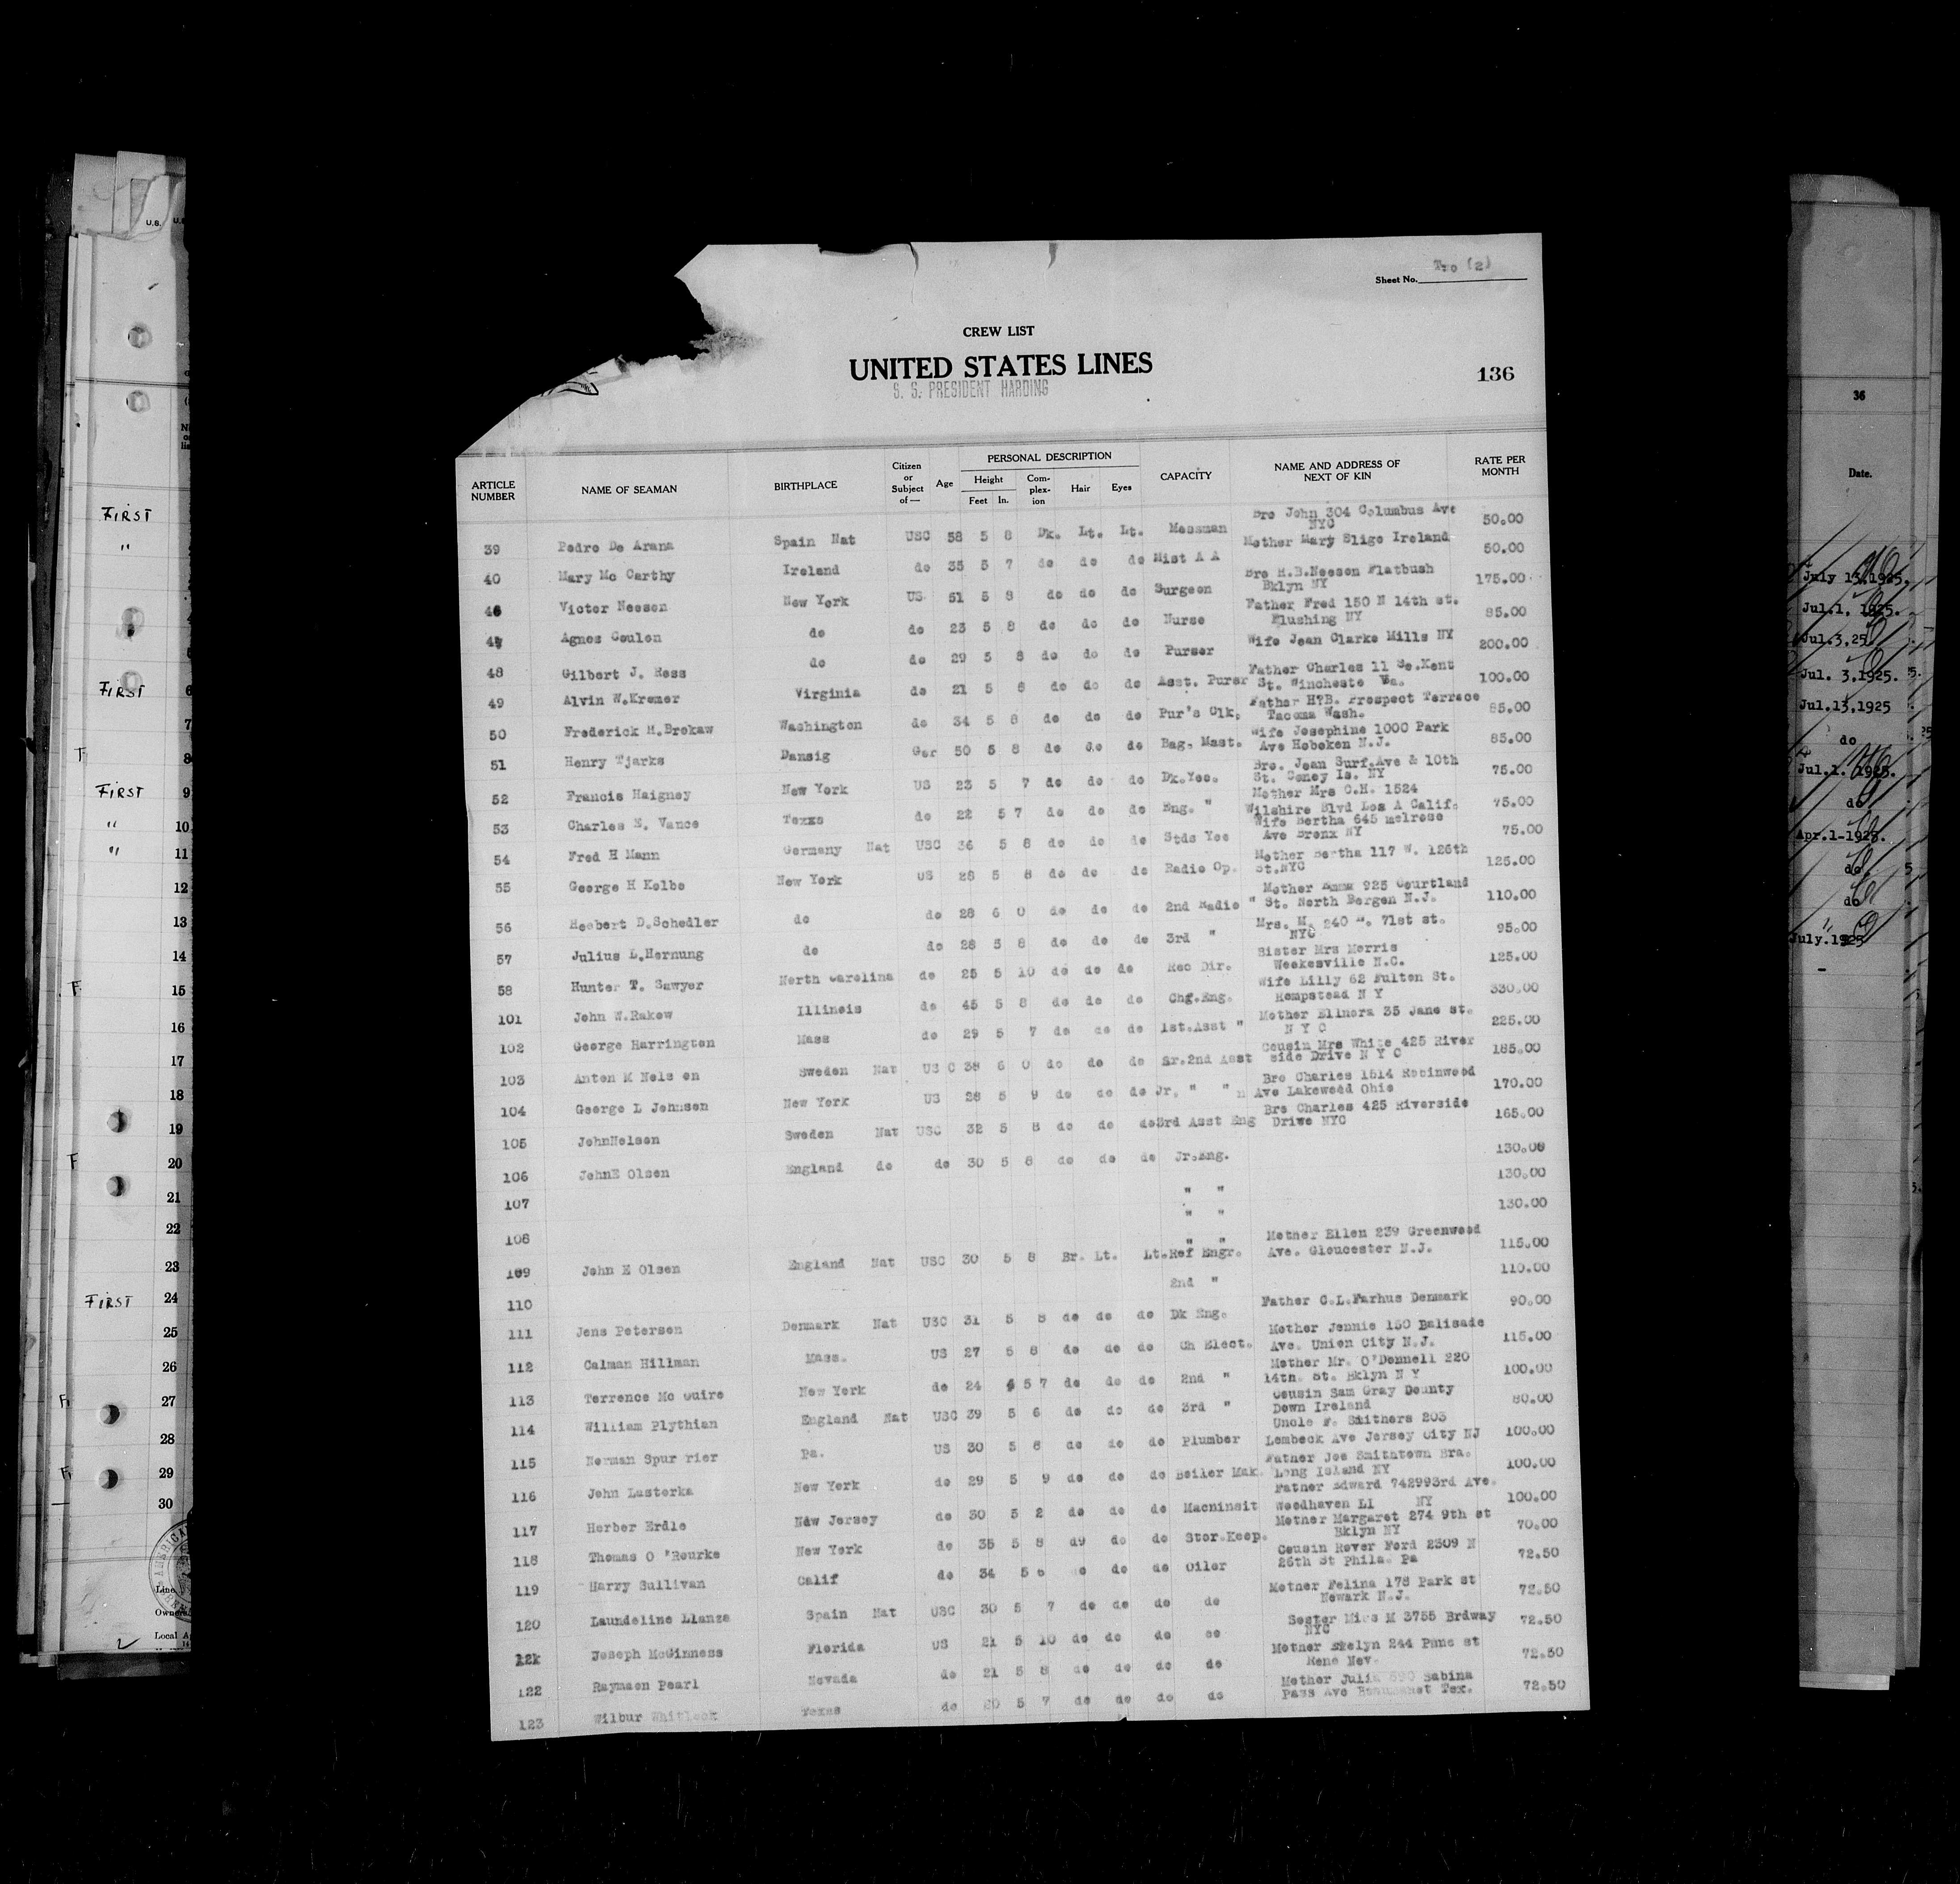 Sheet No. Two (2)
CREW LIST
UNITED STATES LINES
S. S. PRESIDENT HARDING
136
ARTICLE NUMBER NAME OF SEAMAN BIRTHPLACE Citizen or Subject of— Age PERSONAL DESCRIPTION Height Feet In. Com-plex-ion Hair Eyes CAPACITY NAME AND ADDRESS OF NEXT OF KIN RATE PER MONTH
39 Pedro De Arana Spain Nat USC 58 5 8 Dk. Lt. Lt. Messman Bro John 304 Columbus Ave NYC 50.00
40 Mary Mc Carthy Ireland do 35 5 7 do do do Mist A A Mother Mary Sligo Ireland 50.00
46 Victor Neesen New York US 51 5 8 do do do Surgeon Bro H.B.Neesen Flatbush Bklyn NY 175.00
47 Agnes Coulon do do 23 5 8 do do do Nurse Father Fred 150 N 14th st. Flushing NY 85.00
48 Gilbert J. Ross do do 29 5 8 do do do Purser Wife Jean Clarke Mills NY 200.00
49 Alvin W.Kremer Virginia do 21 5 8 do do do Asst. Purer Father Charles 11 So.Kent St. Wincheste Va. 100.00
50 Frederick M.Brokaw Washington do 34 5 8 do do do Pur's Clk. Father H?B. Prospect Terrace Tacoma Wash. 85.00
51 Henry Tjarks Danzig Ger 50 5 8 do do do Bag. Mast. Wife Josephine 1000 Park Ave Hoboken N.J. 85.00
52 Francis Haigney New York US 23 5 7 do do do Dk.Yeo. Bro. Jean Surf.Ave & 10th St. Coney Is. NY 75.00
53 Charles E. Vance Texas do 22 5 7 do do do Eng. " Mother Mrs C.H. 1524 Wilshire Blvd Los A Calif. 75.00
54 Fred H Mann Germany Nat USC 36 5 8 do do do Stds Yeo Wife Bertha 645 Melrose Ave Bronx NY 75.00
55 George H Kolbe New York US 28 5 8 do do do Radio Op. Mother Bertha 117 W. 126th St.NYC 125.00
56 Heebert D.Schedler do do 28 6 0 do do do 2nd Radio " Mother Emma 925 Courtland St. North Bergen N.J. 110.00
57 Julius L.Hornung do do 28 5 8 do do do 3rd " Mrs. M. 240 . 71st st. NYC 95.00
58 Hunter T. Sawyer North Carolina do 25 5 10 do do do Rec Dir. Sister Mrs Morris Weekesville N.C. 125.00
101 John W.Rakow Illinois do 45 5 8 do do do Chg.Eng. Wife Lilly 62 Fulton St. Hempstead N Y 330.00
102 George Harrington Mass do 29 5 7 do do do 1st.Asst " Mother Ellnora 35 Jane st. N Y C 225.00
103 Anton M Nels on Sweden Nat US C 38 6 0 do do do Sr.2nd Asst Cousin Mrs White 425 River side Drive N Y C 185.00
104 George L Johnson New York US 28 5 9 do do do Jr. " " n Bro Charles 1514 Robinwood Ave Lakewood Ohio 170.00
105 JohnNelson Sweden Nat USC 32 5 8 do do do 3rd Asst Eng Bro Charles 425 Riverside Drive NYC 165.00
106 JohnE Olsen England do do 30 5 8 do do do Jr.Eng. 130.00
107 " " 130.00
108 " " 130.00
109 John E Olsen England Nat USC 30 5 8 Br. Lt. Lt. " " Ref Engr. Mother Ellen 239 Greenwood Ave. Gloucester N.J. 115.00
110 2nd " 110.00
111 Jens Petersen Denmark Nat USC 31 5 8 do do do Dk Eng. Father C.L.Farhus Denmark 90.00
112 Calman Hillman Mass. US 27 5 8 do do do Ch Elect. Mother Jennie 150 Balisade Ave. Union City N.J. 115.00
113 Terrence Mc Guire New York do 24 5 7 do do do 2nd " Mother Mr. O'Donnell 220 14th. St. Bklyn N Y 100.00
114 William Plythian England Nat USC 39 5 6 do do do 3rd " Cousin Sam Gray Dounty Down Ireland 80.00
115 Norman Spur rier Pa. US 30 5 8 do do do Plumber Uncle F. Smithers 203 Lembeck Ave Jersey City NJ 100.00
116 John Lusterka New York do 29 5 9 do do do Boiler Mak. Father Joe Smithtown Bra. Long Island NY 100.00
117 Herber Erdle New Jersey do 30 5 2 do do do Macninsit Father Edward 742993rd Ave. Woodhaven LI NY 100.00
118 Thomas O 'Rourke New York do 35 5 8 d9 do do Stor.Keep. Mother Margaret 274 9th st Bklyn NY 70.00
119 Harry Sullivan Calif do 34 5 6 do do Oiler Cousin Rover Ford 2509 N 26th St Phila. Pa 72.50
120 Laundeline Llanza Spain Nat USC 30 5 7 do do do do Mother Felina 178 Park st Newark N.J. 72.50
121 Joseph McGinness Florida US 21 5 10 do do do Sester Miss M 3755 Brdway NYC 72.50
122 Raymaon Pearl Nevada do 21 5 8 do do do do Mother 244 Pine st Reno Nev. 72.50
123 Wilbur Whitlock Texas do 20 5 7 do do do do Mother Julia 590 Sabina Pass Ave Tex. 72.50
FIRST
"
FIRST
FIRST
"
"
FIRST
7
8
9
10
11
12
13
14
15
16
17
18
19
20
21
22
23
24
25
26
27
28
29
30
Local
36
Date.
July 13,1925.
Jul.1, 1925.
Jul.3,25.
Jul. 3,1925.
Jul.13,1925
do
Jul.1. 1925.
do
Apr.1-1925.
do
do
"
July.1925